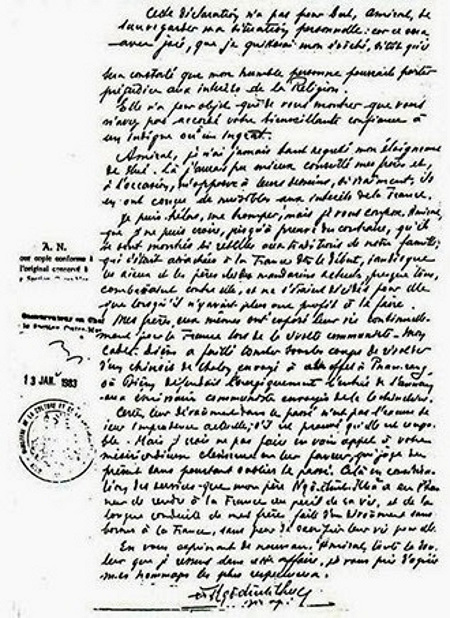 Cette déclaration n'a pas pour but, Amiral, de
sauvegarder ma situation personnelle : car ce sera
avec joie, que je quitterai mon évêché, sitôt qu'il
sera constaté que mon humble personne pourrait porter
préjudice aux intérêts de la Religion.
Elle n'a pour objet que de vous montrer que vous
n'avez pas accordé votre bienveillante confiance à
un indigne ou un ingrat.
Amiral, je n'ai jamais tant regretté mon éloignement
de Hué. Là j'aurais pu mieux conseiller mes frères et,
à l'occasion, m'opposer à leurs desseins, si vraiment, ils
en ont conçus de nuisibles aux intérêts de la France.
Je puis, hélas, me tromper, mais je vous confesse, Amiral,
que je ne puis croire, jusqu'à preuve du contraire, qu'ils
se sont montrés si rebelles aux traditions de notre famille
qui s'était attachée à la France dès le début, tandis que
les aïeux et les pères des mandarins actuels, presque tous,
combattaient contre elle, et ne s'étaient décidés pour elle
que lorsqu'il n'y avait plus que profit à la faire.
Mes frères, eux mêmes ont exposé leur vie continuelle-
ment pour la France lors de la révolte communiste. Mon
cadet, Diêm a failli tomber sous les coups de revolver
d'un chinois de Cholon envoyé à cet effet à Phanrang,
où Diêm défendait énergiquement l'entrée de l'Annam
aux émissaires communistes envoyés de la Cochinchine.
Certes, leur dévouement dans le passé n'est pas l'excuse de
leur imprudence actuelle, s'il est prouvé qu'elle est coupa-
ble. Mais je crois ne pas faire en vain appel à votre
miséricordieuse clémence en leur faveur, qui juge du
présent sans pourtant oublier le passé. Cela en considéra-
tion des services que mon père Ngô-đinh-Khả a eu l'hon-
neur de rendre à la France au péril de sa vie, et de la
longue conduite de mes frères, faite d'un dévouement sans
bornes à la France, sans peur de sacrifier leur vie pour elle.
En vous exprimant de nouveau, Amiral, toute la dou-
leur que je ressens dans cette affaire, je vous prie d'agréer
mes hommages les plus respectueux.
Ngôđinhthục
A. N.
our copie conforme à
l'original conservé à
Section Outre-Mer
Conservateur en Chef
la Section Outre-Mer
13 JAN. 1983
MINISTERE DE LA CULTURE ET DE LA